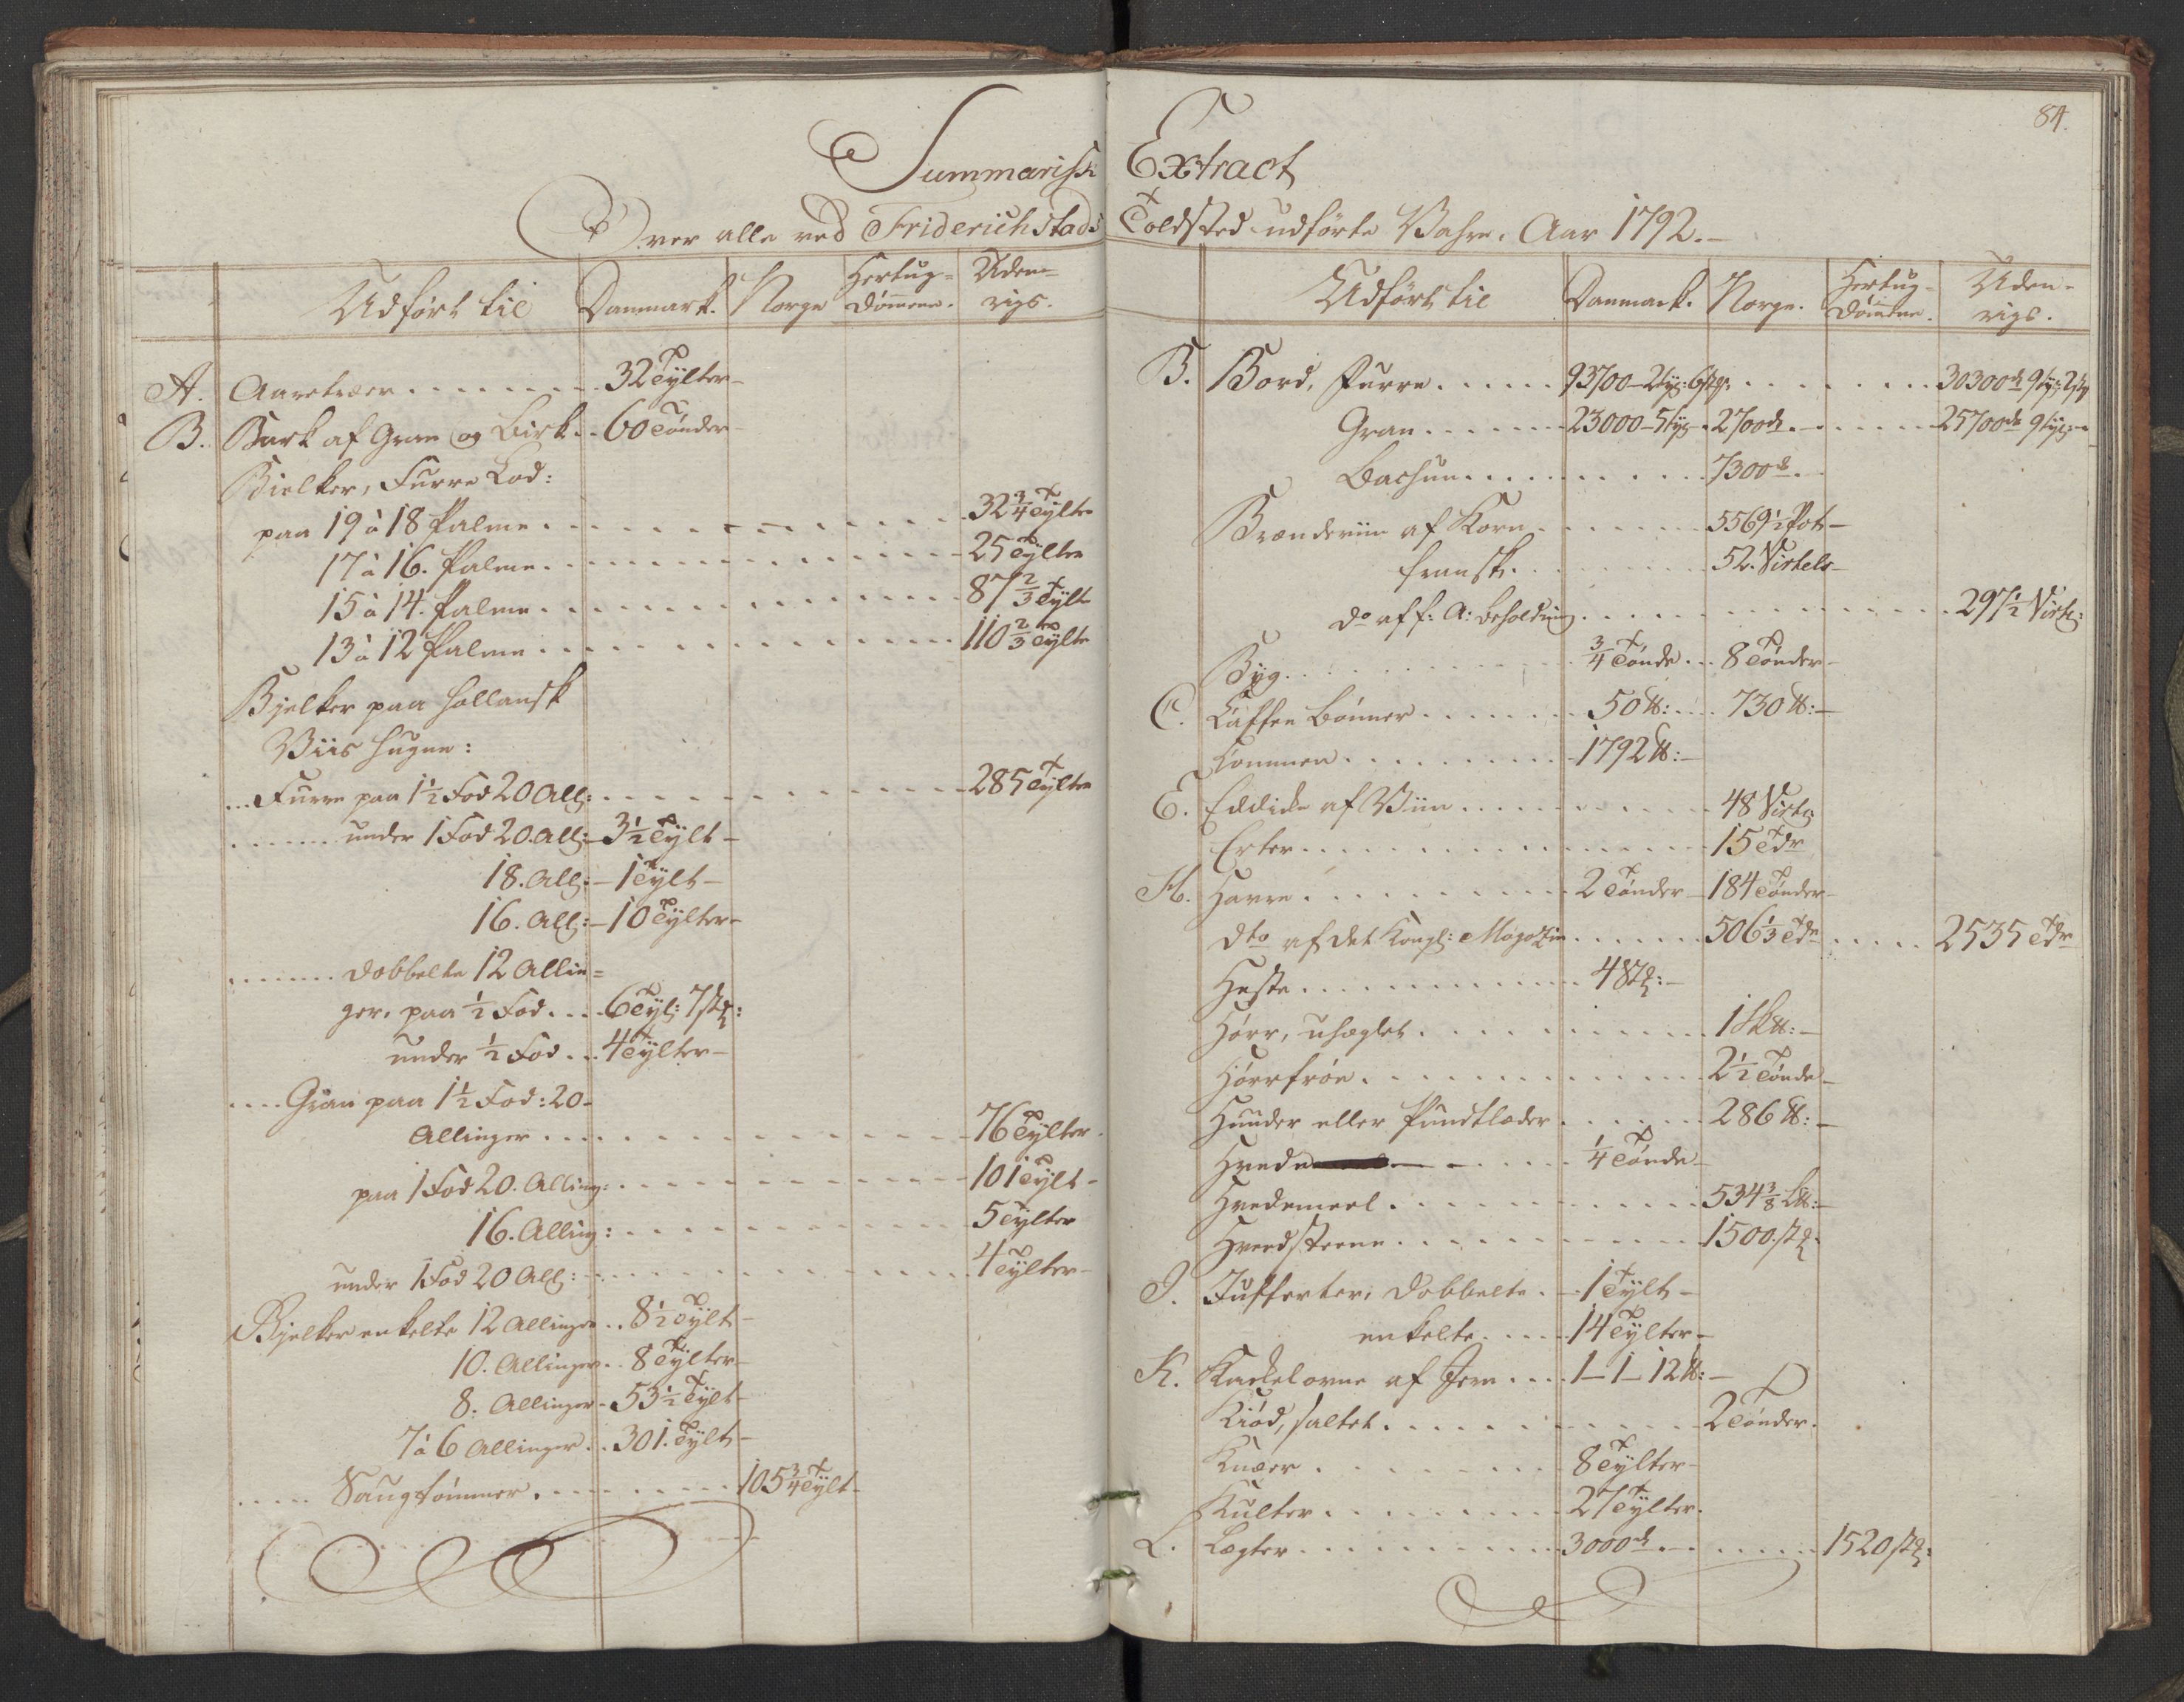 84.
Summarisk Extract
Over alle ved Friderichstads Toldsted udførte Vahre. Aar 1792.-
Udført til Danmark. Norge Hertug= Uden=
dømmene. rigs.
A. Aaretræer . . . . . . . . 32 Tylter-
B. Bark af Gran og Birk . . 60 Tønder-
Bielker, Furre Lod:
paa 19 à 18 Palme . . . . . . 32 3/4 Tylter
17 à 16. Palme . . . . . . 25 Tylter
15 à 14. Palme . . . . . . 87 2/3 Tylt
13 à 12 Palme . . . . . . 110 2/3 Tylte
Bjelker paa Hollansk
Viis hugne:
... Furre paa 1 1/2 Fod 20 All: . . . . . 285 Tylter
....... under 1 Fod 20. All: - 3 1/2 Tylt -
18. All: - 1 Tylt -
16. All: - 10 Tylter -
....... dobbelte 12 Allin=
ger, paa 1/2 Fod . . . 6 Tyl: 7 stk:
under 1/2 Fod . . 4 Tylter -
.... Gran paa 1 1/2 Fod: 20-
Allinger . . . . . . 76 Tylter.
paa 1 Fod 20. Alling: . . . . . 101 Tylt -
16. Alling: . . . . . 5 Tylter
under 1 Fod 20 All: . . . . . 4 Tylter -
Bjelker enkelte 12 Allinger . . 8 1/2 Tylt -
10. Allinger . . 8 Tylter -
8. Allinger - 53 1/2 Tylt -
7 à 6 Allinger . . 301. Tylt -
..... Saugtømmer . . . . . . 105 3/4 Tylt -
Udført til Danmark. Norge. Hertug- Uden-
dømene. rigs.
B. Bord, Furre . . . . . 93700 - 2 tyl: 6 stk: . . . . . . 30300 9 tyl: 2 stk
Gran . . . . . . 23000 - 5 tyl - . 2700 . . . . . . 25700 9 tyl: -
Bachun . . . . . . 7300 . -
Brændeviin af Korn . . . . . . 5569 1/2 Pot -
fransk . . . . . . 52. Virtels -
do af f: A: beholdning . . . . . . 297 1/2 Virtl:
Byg . . . . . . 3/4 Tønde . . 8 Tønder -
C. Caffee Bønner . . . . . . 50 ℔: . . . 730 ℔: -
Commen . . . . . . 1792 ℔: -
E. Eddicke af Viin . . . . . . 48 Virtl:
Erter . . . . . . 15 Tdr
H. Havre . . . . . . 2 Tønder - 184 Tønder -
dto af det Kongl: Magazin . . . . . . 506 1/3 Tdr . . . . . 2535 Tdr
Heste . . . . . . 4 stk: -
Hørr, uheglet . . . . . . 1 Sk℔: -
Hørrfrøe . . . . . . 2 1/2 Tønde -
Huuder eller Pundlæder . . . . . . 286 ℔: -
Hvede . . . . . 1/4 Tønde -
Hvedemeel . . . . . . 534 3/8 L℔: -
Hvedsteene . . . . . . 1500 stk.
J. Jufferter, dobbelte . - 1 Tylt -
enkelte . . . . 14 Tylter -
K. Kackelovne af Jern . . . 1 - 1 - 12 ℔: -
Kiød, saltet . . . . . . 2 Tønder.
Knæer . . . . . . 8 Tylter -
Kulter . . . . . . 27 Tylter.
L. Lægter . . . . . . 3000 . . . . . . 1520 stk: